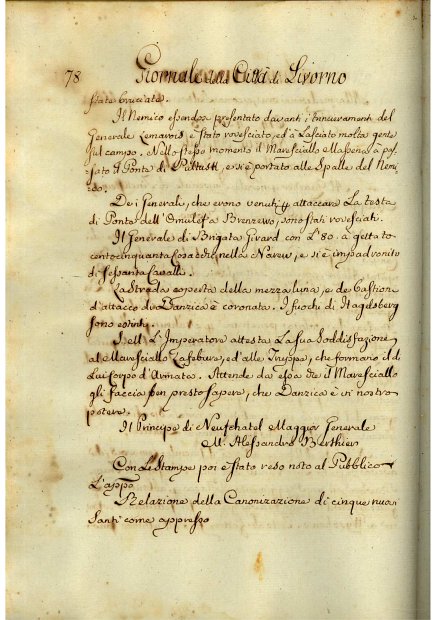 78 Giornale della Città di Livorno
state bruciate.
Il Nemico essendosi presentato davanti i Trinceramenti del
Generale Lemarois è stato rovesciato, ed à lasciato molta gente
sul campo. Nello stesso momento il Maresciallo Massena à pas-
sato il Ponte di Pultusk, e si è portato alle spalle del Nemi-
co.
Dei Generale, che erono venuti p attaccare La testa
di Ponte dell'Omulef a Drenzewo, sono stati rovesciati.
Il Generale di Brigata Girard con L'80. à gettato
centocinquanta Cosacchi nella Narew, e si è impadronito
di sessanta Cavalli.
La strada coperta della mezza luna, e de Bastione
d'attacco di Danzica è coronata. I fuochi di Hagelsberg
sono estinti.
S. ell' L'Imperatore attesta La sua Soddisfazione
al Maresciallo Lafebure, ed'alle Truppe, che formano il di
Lui Corpo d'Armata. Attende da essa che il Maresciallo
gli faccia ben presto sapere, che Danzica è in nostro
potere.
Il Principe di Neufschatel Maggior Generale
M. Alessandro Berthier
Con Le Stampe poi è stato reso noto al Pubblico
L'appo
Relazione della Canonizazione di cinque nuovi
Santi come appresso